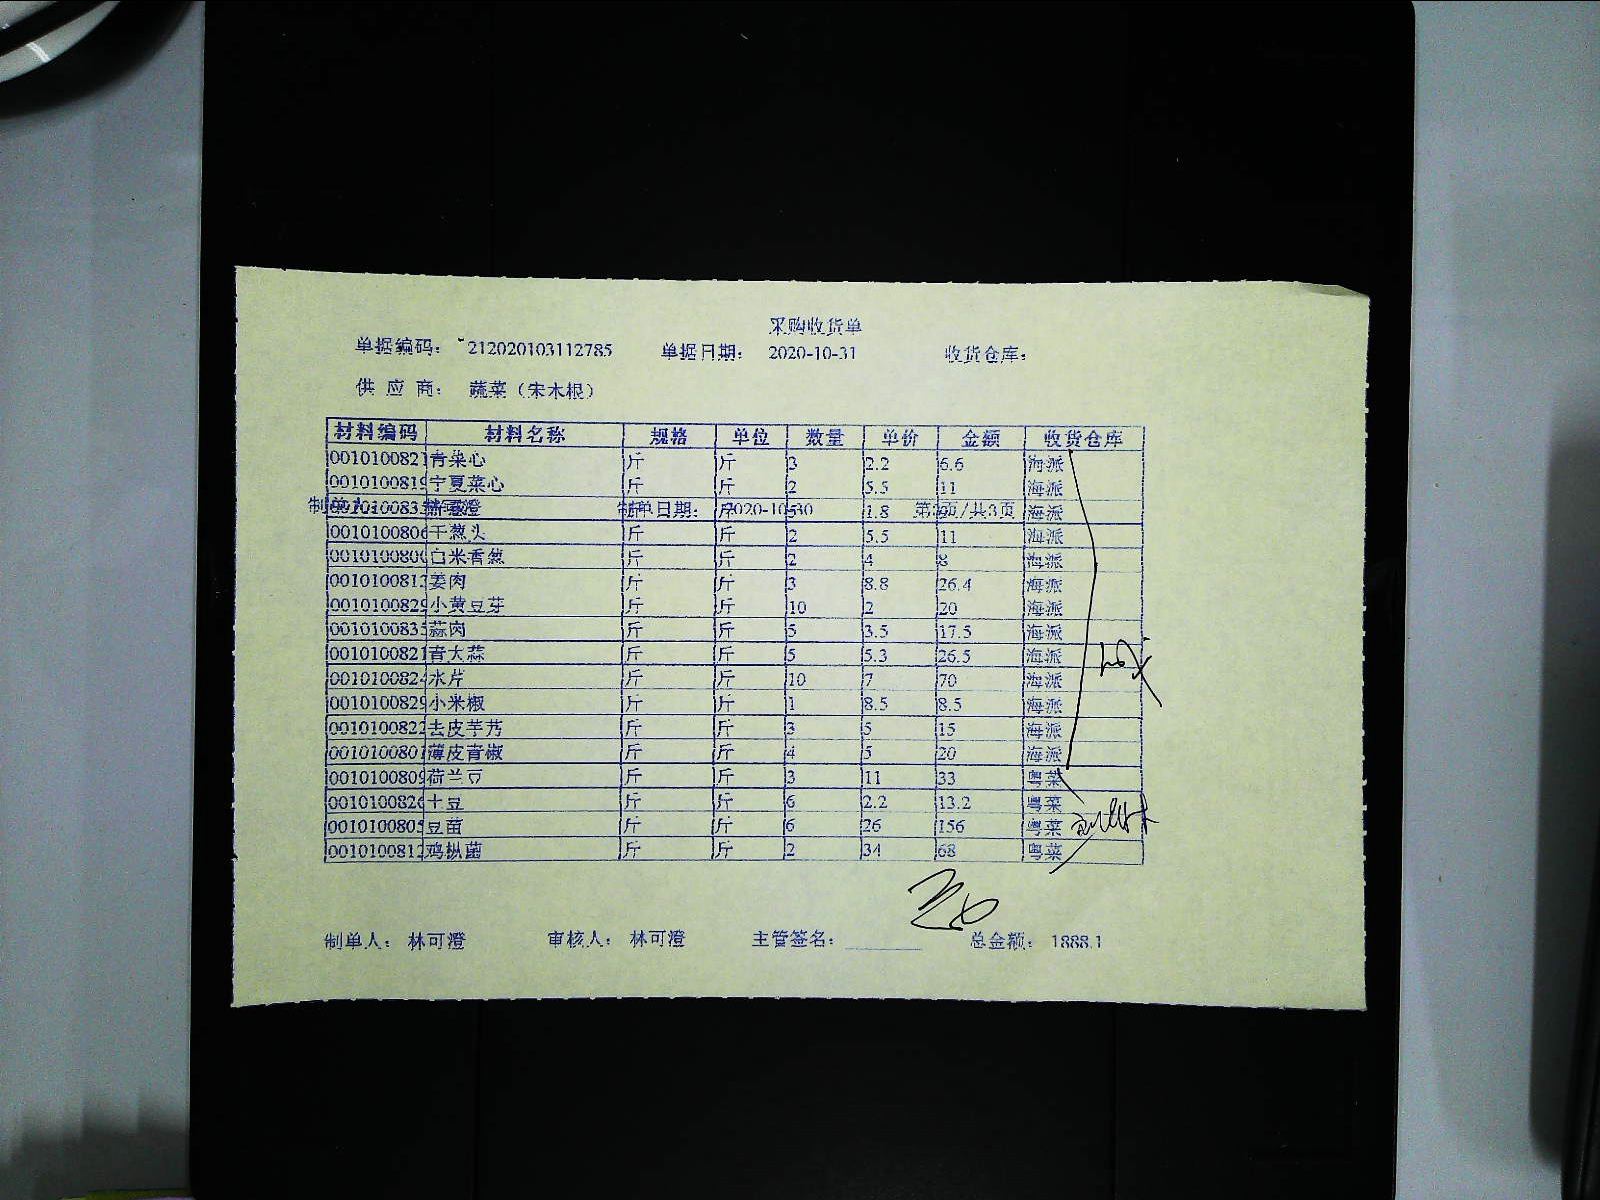 采购收货单
单据编码： 212020103112785 单据日期： 2020-10-31 收货仓库：
供 应 商： 蔬菜（宋木根）
材料编码 材料名称 规格 单位 数量 单价 金额 收货仓库
0010100821 青菜心 斤 斤 3 2.2 6.6 海派
001010081 宁夏菜心 斤 斤 2 5.5 11 海派
制单人： 制单日期： 2020-10-30 /共3页
001010083 斤 5 1.8 海派
001010080 干葱头 斤 斤 2 5.5 11 海派
001010080 白米香葱 斤 斤 2 4 8 海派
001010081 姜肉 斤 斤 3 8.8 26.4 海派
001010082 小黄豆芽 斤 斤 10 2 20 海派
001010083 蒜肉 斤 斤 5 3.5 17.5 海派
0010100821 青大蒜 斤 斤 5 5.3 26.5 海派
001010082 水芹 斤 斤 10 7 70 海派
001010082 小米椒 斤 斤 1 8.5 8.5 海派
001010082 去皮芋艿 斤 斤 3 5 15 海派
001010080 薄皮青椒 斤 斤 4 5 20 海派
001010080 荷兰豆 斤 斤 3 11 33 粤菜
001010082 土豆 斤 斤 6 2.2 13.2 粤菜
001010080 豆苗 斤 斤 6 26 156 粤菜
001010081 鸡枞菌 斤 斤 2 34 68 粤菜
制单人： 林可澄 审核人： 林可澄 主管签名： 总金额： 1888.1